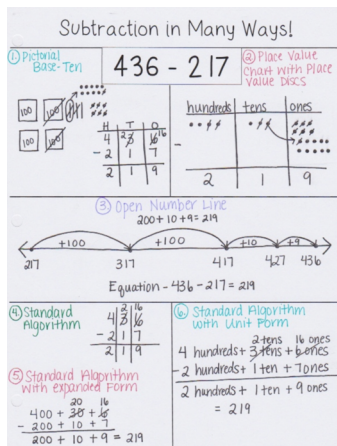 Subtraction in Many Ways!
① Pictorial
Base-Ten
436 - 217
② Place Value
Chart with Place
Value Discs
100 100
100 100
H T O
2 16
4 3 6
- 2 1 7
2 1 9
hundreds tens ones
-
2 1 9
③ Open Number Line
200+10+9=219
+100 +100 +10 +9
217 317 417 427 436
Equation - 436 - 217 = 219
④ Standard
Algorithm
2 16
4 3 6
- 2 1 7
2 1 9
⑤ Standard Algorithm
with Expanded Form
20 16
400 + 30 + 6
- 200 + 10 + 7
200 + 10 + 9 = 219
⑥ Standard Algorithm
with Unit Form
2 tens 16 ones
4 hundreds + 3 tens + 6 ones
- 2 hundreds + 1 ten + 7 ones
2 hundreds + 1 ten + 9 ones
= 219